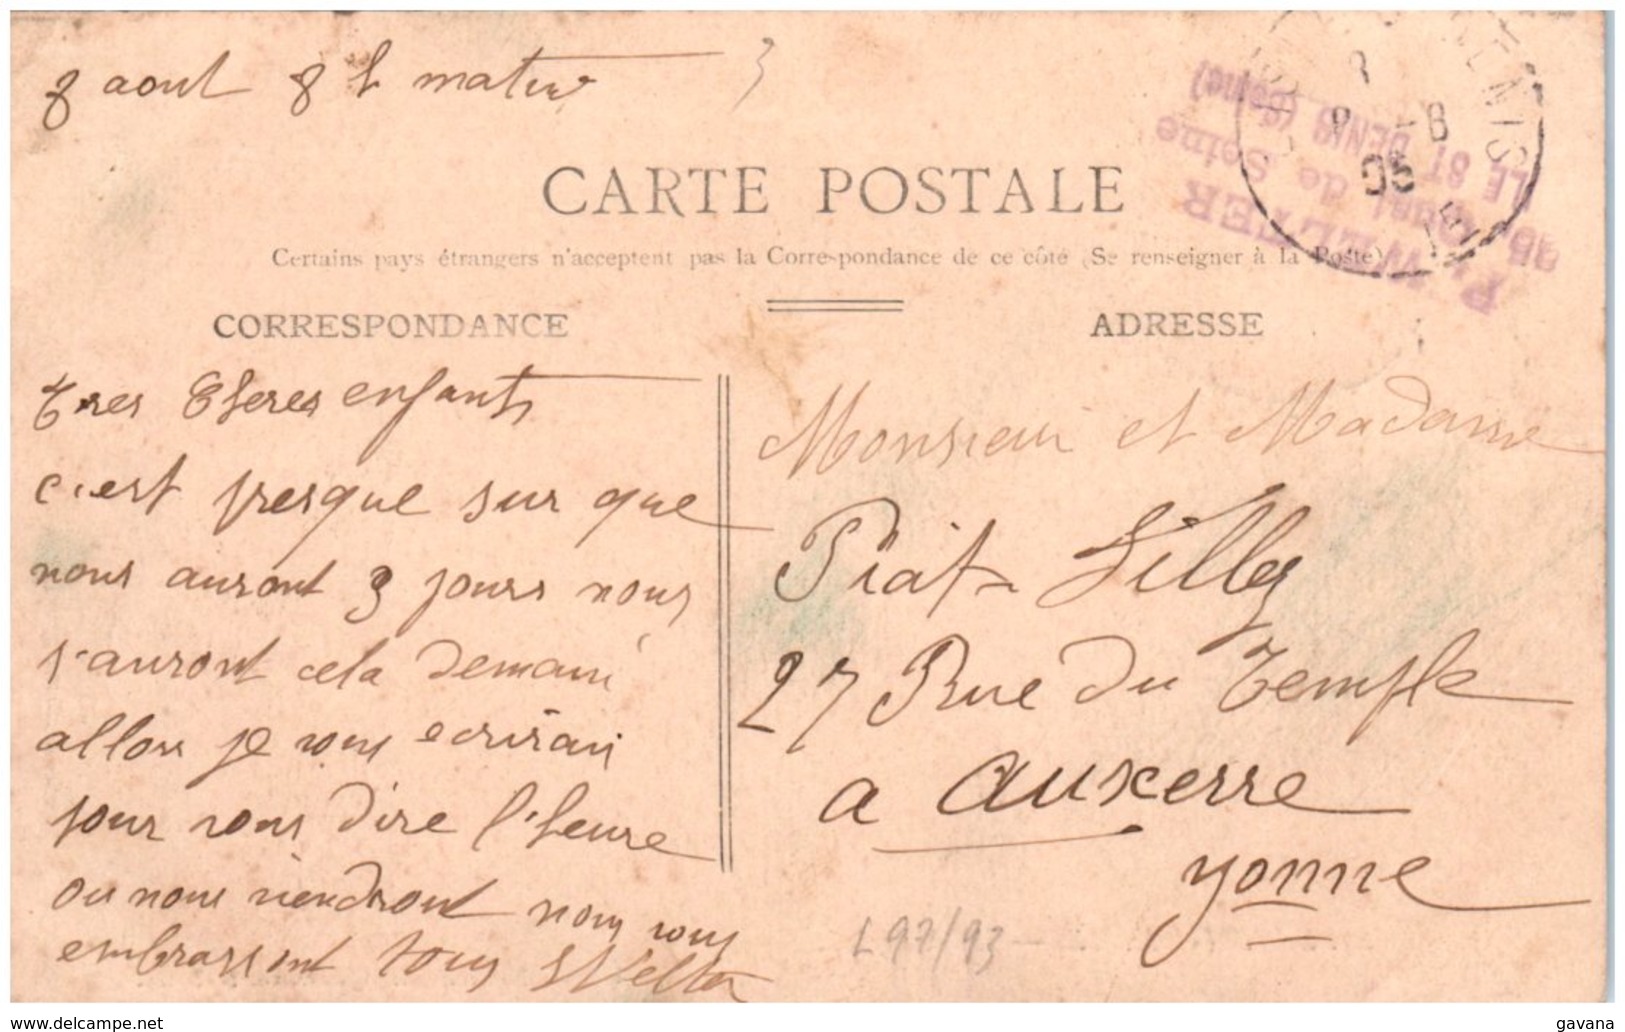 8 aout 8 h matin
CARTE POSTALE
Certains pays étrangers n'acceptent pas la Correspondance de ce côté (Se renseigner à la Poste)
P. WELTER
Quai de Seine
LE ST DENIS (Seine)
CORRESPONDANCE
Tres Cheres enfants
c'est presque sur que
nous auront 3 jours nous
s'auront cela demain
allors je vous ecrirai
pour vous dire l'heure
ou nous viendront nous vous
embrassont tous Welter
ADRESSE
Monsieur et Madame
Piat Silly
27 Rue du Temple
a Auxerre
Yonne
L97/93
www.delcampe.net
gavana